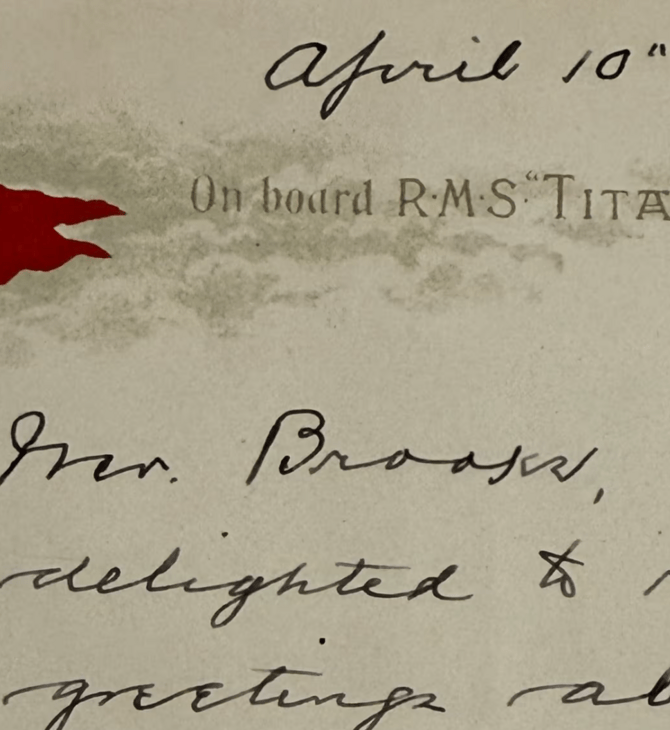 April 10"
On board R·M·S "TITA
Mr. Brooks,
delighted to
greetings al